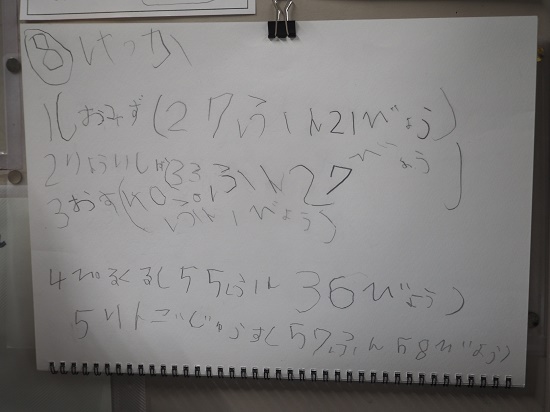 ⑧ けっか
1 しおみず(27ふん21びょう)
2 りょうりしゅ(33ふん27びょう)
3 おす(40ぷん
ぷん1びょう)
4 みるくるし55ふん36びょう)
5 りんごじゅうす(57ふん58びょう)